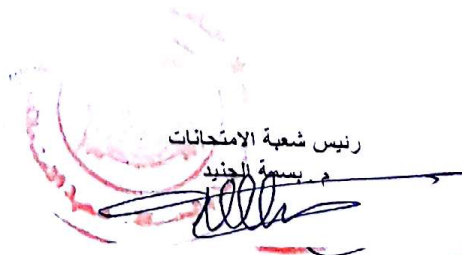 رئيس شعبة الامتحانات
م. بسمة الجنيد